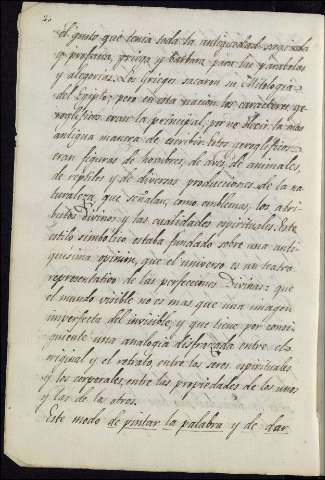 el gusto que tenia toda la antiguedad sagrada
y profana, griega y barbara para las parabolas
y alegorias. Los Griegos sacaron su Mitologia
del Egipto; pero en esta nacion los caracteres ge-
roglificos eran la principal, por no decir la mas
antigua manera de escribir. Estos geroglificos
eran figuras de hombres, de aves, de animales,
de reptiles y de diversas producciones de la na
turaleza, que señalar, como emblemas, los atri
butos Divinos y las cualidades espirituales. Este
estilo simbolico estaba fundado sobre una anti-
quisima opinion, que el universo es un teatro
representativo de las perfecciones Divinas: que
el mundo visible no es mas que una imagen
imperfecta del invisible, y que tiene por consi
guiente una analogia disfrazada entre el o
riginal y el retrato, entre los seres espirituales
y los corporales, entre las propiedades de los unos
y las de los otros.
Este modo de pintar la palabra y de dar